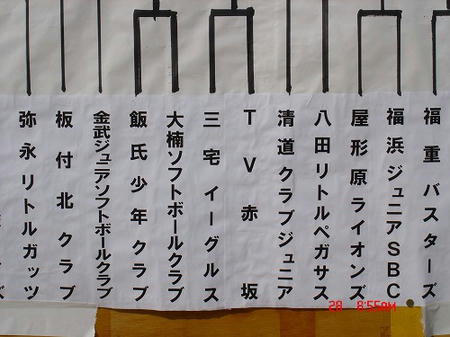 福重バスターズ
福浜ジュニアSBC
屋形原ライオンズ
八田リトルペガサス
清道クラブジュニア
TV赤坂
三宅イーグルス
大楠ソフトボールクラブ
飯氏少年クラブ
金武ジュニアソフトボールクラブ
板付北クラブ
弥永リトルガッツ
28 8:55AM